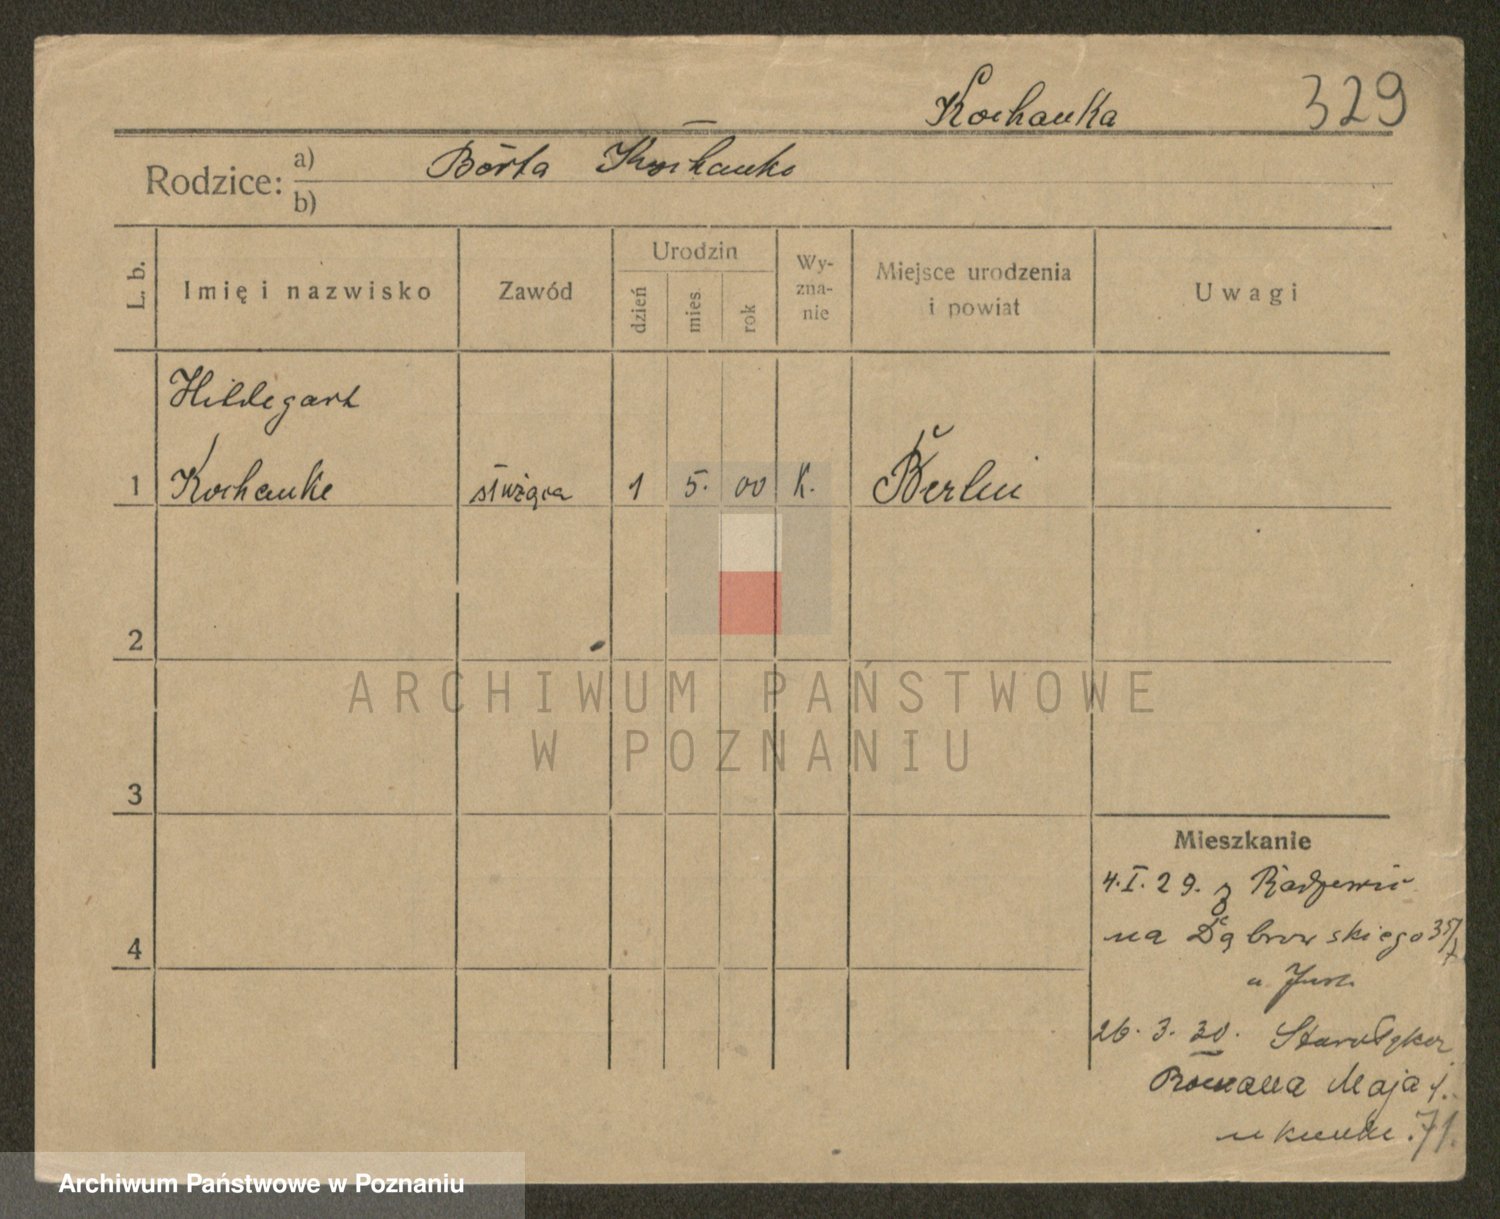 Kochanka 329
Rodzice: a) Berta Kochanke
b)
L. b.
Imię i nazwisko
Zawód
Urodzin
dzień
mies.
rok
Wy-
zna-
nie
Miejsce urodzenia
i powiat
Uwagi
Hildegart
1 Kochanke służąca 1 5. 00 K. Berlin
2
ARCHIWUM PAŃSTWOWE
W POZNANIU
3
Mieszkanie
4. I. 29. z Radzewic
4
na Dąbrowskiego 35/
u
26. 3. 30. Starołęka
Maja 1.
71.
Archiwum Państwowe w Poznaniu